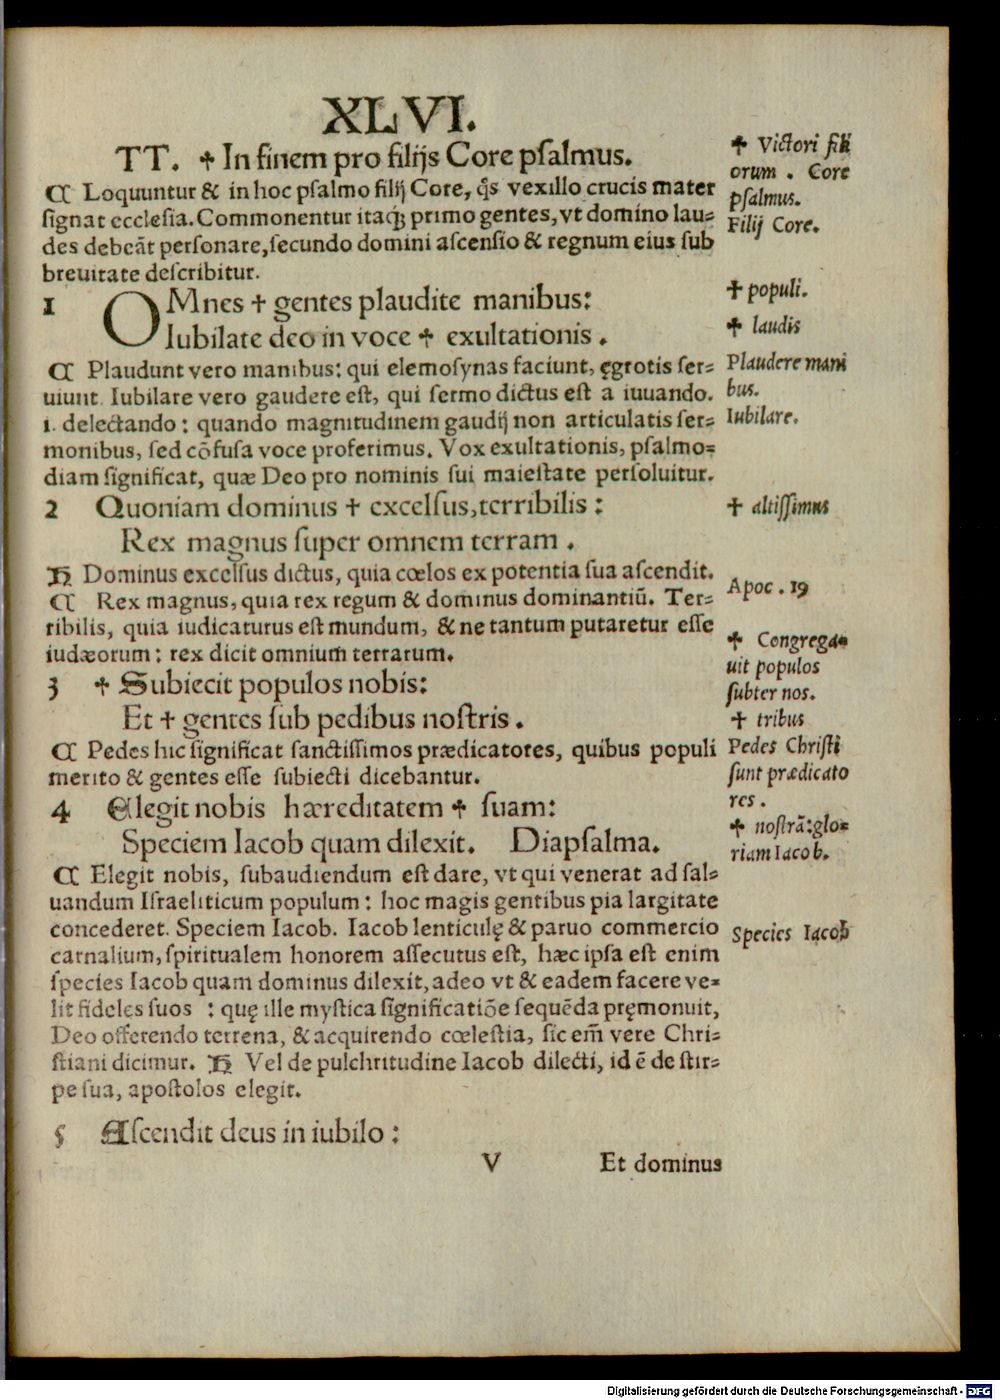 XLVI.
TT. ✝ In finem pro filijs Core pſalmus.
✝ Victori fili
orum . Core
pſalmus.
Filij Core.
₵ Loquuntur & in hoc pſalmo filij Core, q̃s vexillo crucis mater
ſignat eccleſia. Commonentur itaq; primo gentes, vt domino lau⸗
des debeãt perſonare, ſecundo domini aſcenſio & regnum eius ſub
breuitate deſcribitur.
1 OMnes ✝ gentes plaudite manibus:
Iubilate deo in voce ✝ exultationis .
✝ populi.
✝ laudis
₵ Plaudunt vero manibus: qui elemoſynas faciunt, ęgrotis ſer⸗
uiunt. Iubilare vero gaudere eſt, qui ſermo dictus eſt a iuuando.
i. delectando : quando magnitudinem gaudij non articulatis ſer⸗
monibus, ſed cõfuſa voce proferimus. Vox exultationis, pſalmo⸗
diam ſignificat, quæ Deo pro nominis ſui maieſtate perſoluitur.
Plaudere mani
bus.
Iubilare.
2 Quoniam dominus ✝ excelſus, terribilis :
Rex magnus ſuper omnem terram .
✝ altiſſimus
H Dominus excelſus dictus, quia cœlos ex potentia ſua aſcendit.
₵ Rex magnus, quia rex regum & dominus dominantiũ. Ter⸗
ribilis, quia iudicaturus eſt mundum, & ne tantum putaretur eſſe
iudæorum : rex dicit omnium terrarum.
Apoc . 19
3 ✝ Subiecit populos nobis:
Et ✝ gentes ſub pedibus noſtris .
✝ Congrega⸗
uit populos
ſubter nos.
✝ tribus
₵ Pedes hic ſignificat ſanctiſſimos prædicatores, quibus populi
merito & gentes eſſe ſubiecti dicebantur.
Pedes Chriſti
ſunt prædicato
res .
4 Elegit nobis hæreditatem ✝ ſuam:
Speciem Iacob quam dilexit. Diapſalma.
✝ noſtrã: glo⸗
riam Iacob.
₵ Elegit nobis, ſubaudiendum eſt dare, vt qui venerat ad ſal⸗
uandum Iſraeliticum populum : hoc magis gentibus pia largitate
concederet. Speciem Iacob. Iacob lenticulę & paruo commercio
carnalium, ſpiritualem honorem aſſecutus eſt, hæc ipſa eſt enim
ſpecies Iacob quam dominus dilexit, adeo vt & eadem facere ve⸗
lit fideles ſuos : quę ille myſtica ſignificatiõe ſequẽda pręmonuit,
Deo offerendo terrena, & acquirendo cœleſtia, ſic em̃ vere Chri⸗
ſtiani dicimur. H Vel de pulchritudine Iacob dilecti, id ẽ de ſtir⸗
pe ſua, apoſtolos elegit.
Species Iacob
5 Aſcendit deus in iubilo :
V Et dominus
Digitalisierung gefördert durch die Deutsche Forschungsgemeinschaft - DFG